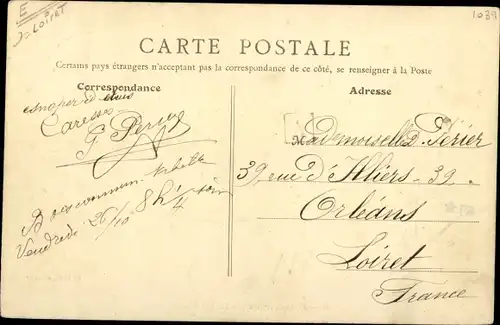 E
LOIRET
1039
CARTE POSTALE
Certains pays étrangers n'acceptant pas la correspondance de ce côté, se renseigner à la Poste
Correspondance
Adresse
Caresses
Mademoiselle Périer
39, rue d'Illiers - 39 -
Orléans
Loiret
France
8h 1/4 soir
Vendredi 26/10